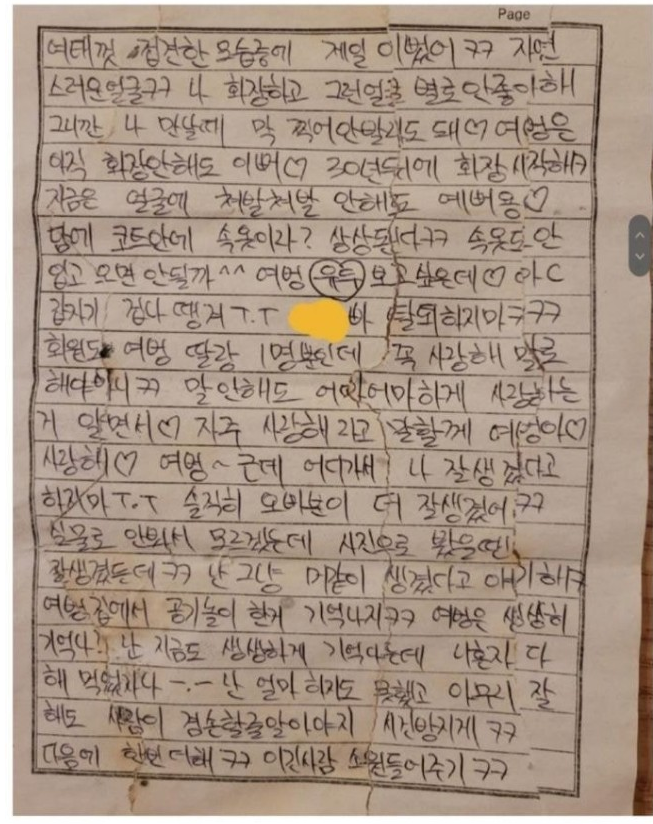 Page
여태껏 접견한 모습중에 제일 이뻤어 ㅋㅋ 자연
스러운얼굴ㅋㅋ 나 화장하고 그런얼굴 별로 안좋아해
그니깐 나 만날때 막 찍어안발라도 돼♡ 여벙은
아직 화장안해도 이뻐♡ 30년뒤에 화장시작해ㅋ
지금은 얼굴에 쳐발쳐발 안해도 예뻐용♡
담에 코트안에 속옷이라? 상상된다ㅋㅋ 속옷도 안
입고 오면 안될까^^ 여벙 보고싶은데♡ 아C
갑자기 겁나 땡겨 T.T 빠 탈퇴하지마ㅋㅋㅋ
회원도 여벙 딸랑 1명뿐인데 꼭 사랑해 말로
해야아니 ㅋㅋ 말안해도 어마어마하게 사랑하는
거 알면서♡ 자주 사랑해 라고 말할께 여벙아♡
사랑해♡ 여벙~ 근데 어디가서 나 잘생겼다고
하지마 T.T 솔직히 오빠분이 더 잘생겼어 ㅋㅋ
실물로 안봐서 모르겠는데 사진으로 봤을땐
잘생겼든데 ㅋㅋ 난 그냥 생겼다고 얘기해ㅋ
여벙집에서 공기놀이 한게 기억나지ㅋㅋ 여벙은 생생히
기억나? 난 지금도 생생하게 기억나는데 너혼자 다
해 먹었자나 -.- 난 얼마 하지도 못했고 아무리 잘
해도 사람이 겸손할줄알아야지 시건방지게 ㅋㅋ
다음에 한번 더해 ㅋㅋ 이긴사람 소원들어주기 ㅋㅋ